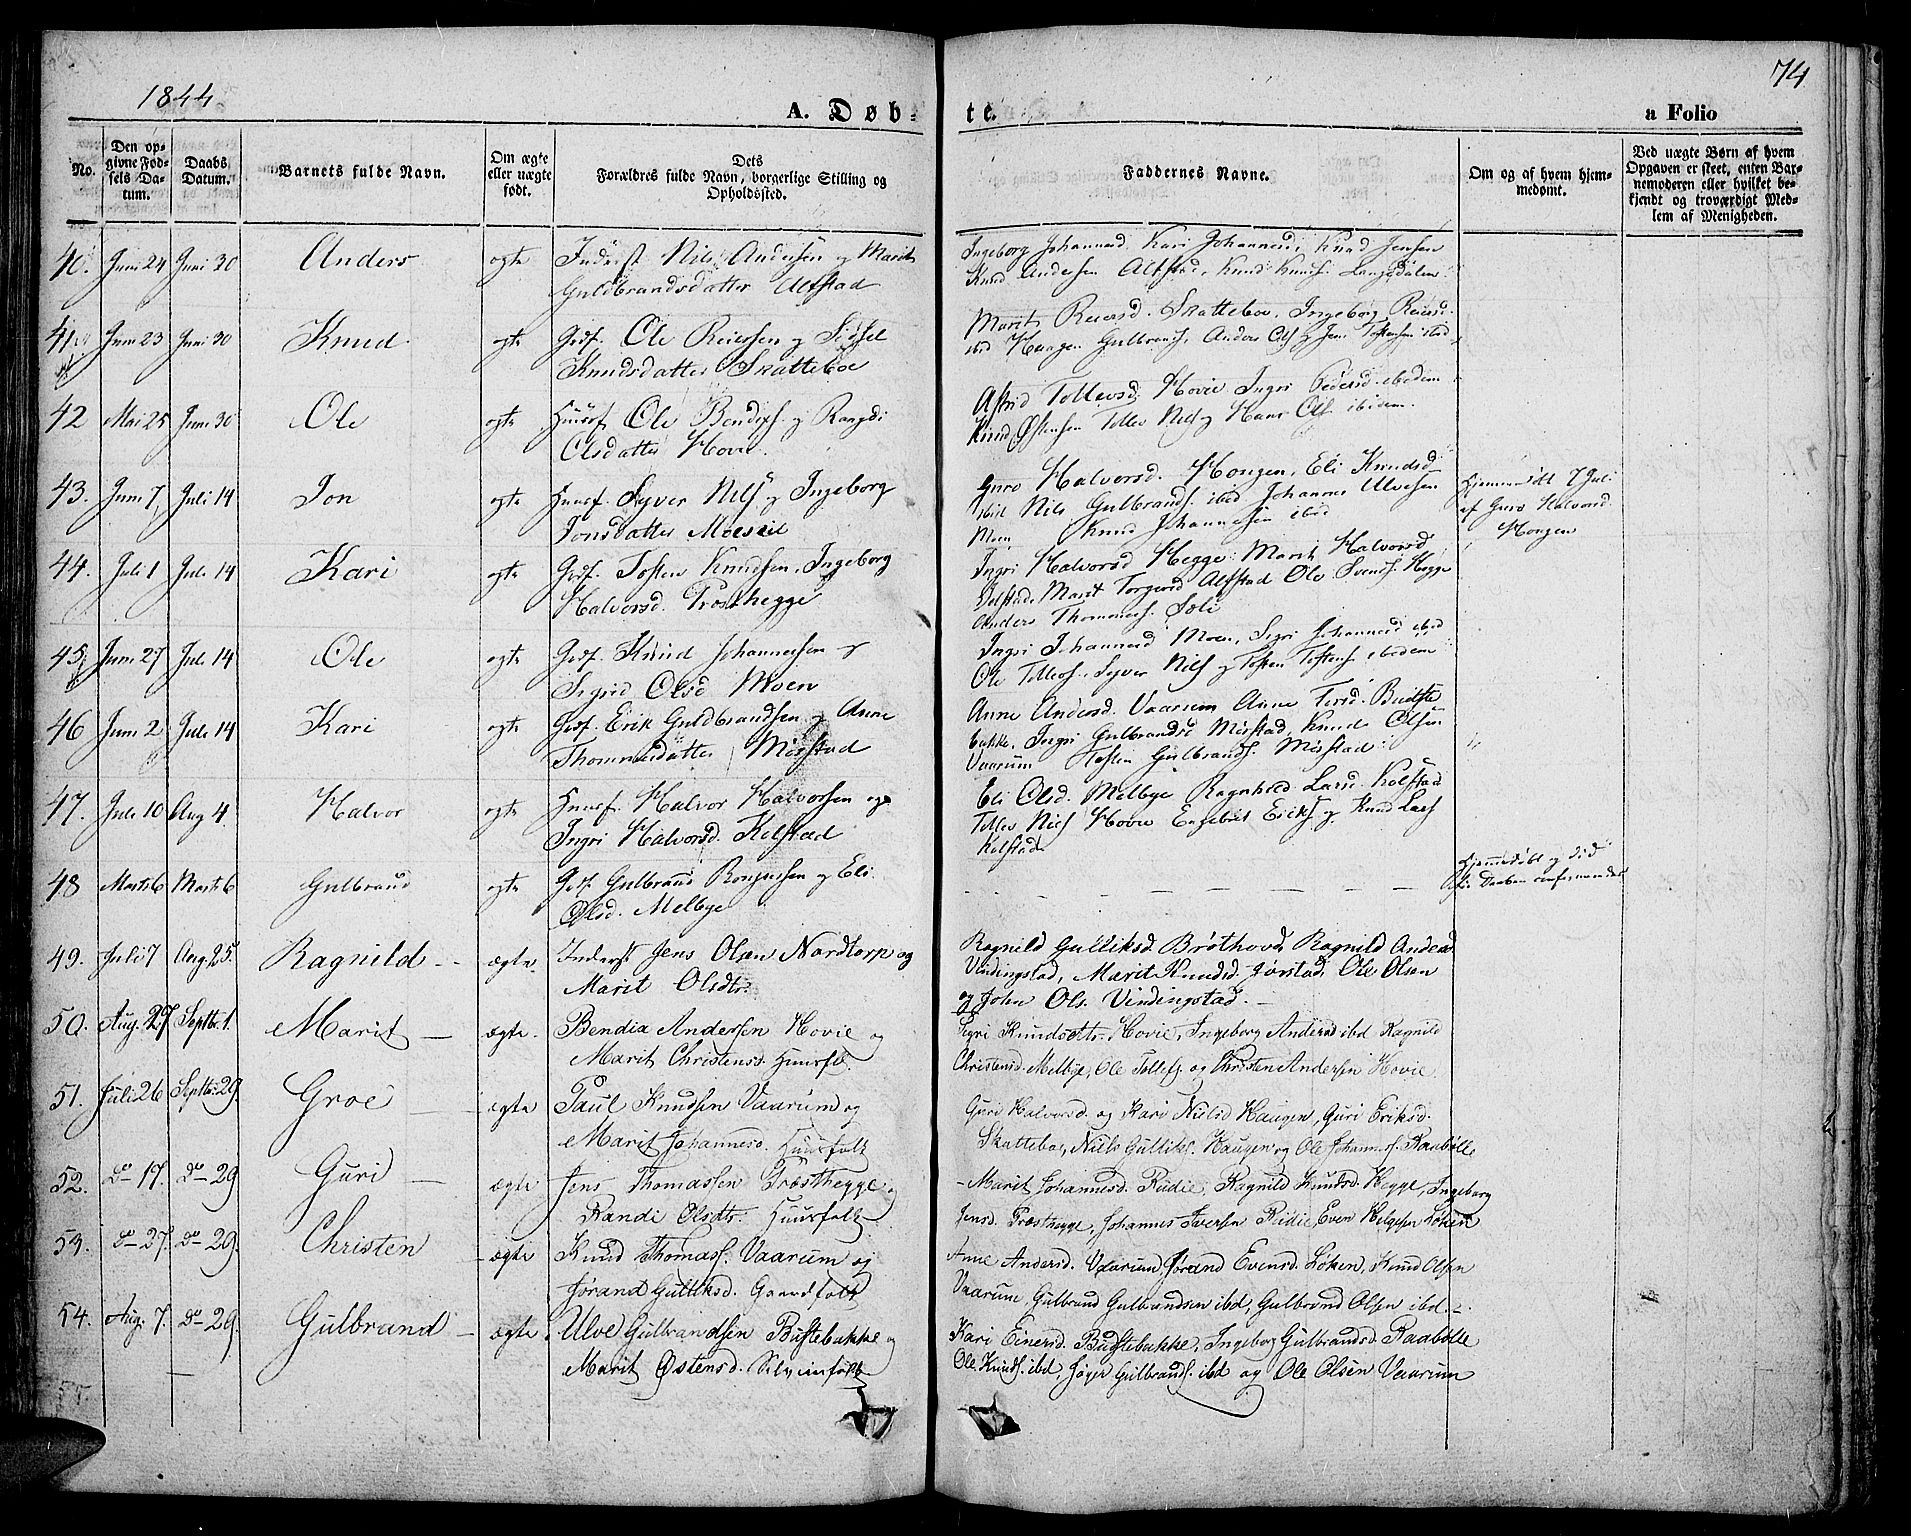 1844
74
A. Døb-
te.
a Folio
No.
Den op-
givne Fød-
sels Da-
tum.
Daabs
Datum.
Barnets fulde Navn.
Om ægte
eller uægte
født.
Dets
Forældres fulde Navn, borgerlige Stilling og
Opholdssted.
Faddernes Navne.
Om og af hvem hjem-
medømt.
Ved uægte Børn af hvem
Opgaven er skeet, enten Bar-
nemoderen eller hvilket be-
kjendt og troværdigt Med-
lem af Menigheden.
40. Juni 24 Juni 30 Anders ogte Inderst Nils Andersen og Marit
Guldbrandsdatter Alfstad
Ingeborg Johannesd. Kari Johannesd. Knud Jensen
Knud Andersen Alfstad, Knud Knuds.
41 Juni 23 Juni 30 Knud ogte Gdf. Ole Reiersen og Sidsel
Knudsdatter Skatteboe
Marit Reiersd. Skatteboe, Ingeborg Reiersd.
ibid Haagen Gulbrands. Anders Ols. og Jens Tostensen ibid
42 Mai 25 Juni 30 Ole ogte Huusf. Ole Bendixs. og Rangdi
Olsdatter Hovie.
Astrid Tollevsd. Hovie Ingri Pedersd. ibidem
Knud Østensen Tollev Nils. og Hans Ols. ibidem.
43. Juni 7 Juli 14 Jon ogte Huusf. Syver Nils. og Ingeborg
Jonsdatter Moeseie
Guro Halvorsd. Hongen, Eli Knudsd
ibid Nils Gulbrands. ibid Johannes Ulvesen
Moen Knud Johannesen ibid
Hjemmedøbt 7 Juli
af Guro Halvorsd.
Hongen
44. Juli 1 Juli 14 Kari ogte Gdf. Tosten Knudsen, Ingeborg
Halvorsd. Trosthegge
Ingri Halvorsd Hegge Marit Halvorsd
Marit Torgersd Alfstad Ole Svends. Hegge
Anders Thommes. Soli
45 Juni 27 Juli 14 Ole ogte Gdf. Knud Johannesen og
Sigrid Olsd Moen
Ingri Johannesd Moen, Sigri Johannesd ibid
Ole Tollevs. Syver Nils. og Tosten Tostens. ibidem
46 Juni 2 Juli 14 Kari ogte Gdf. Erik Guldbrandsen og Anne
Thommesdatter Misstad
Anne Andersd. Vaarum Anne Torsd. Budste
bakke. Ingri Gulbrandsd Misstad, Knud Olsen
Vaarum Tosten Gulbrands. Misstad
47. Juli 10 Aug 4. Halvor ogte Huusf. Halvor Halvorsen og
Ingri Halvorsd. Kolstad
Eli Olsd. Melbye Ragnhild Larsd. Kolstad
Tollev Nils. Hovie Engebret Eriks. og Knud Lars.
Kolstad.
48 Marts 6 Marts 6 Gulbrand ogte Gdf. Gulbrand Rongnesen og Eli
Olsd. Melbye
Hjemmedøbt og død
49. Juli 7 Aug. 25. Ragnild ægte. Inderst Jens Olsen Nordtorp og
Marit Olsdtr.
Ragnild Gulliksd. Brøthovd, Ragnild Andersd
Vindingstad, Marit Knudsd. Jorstad, Ole Olsen
og John Ols. Vindingstad.
50. Aug. 27 Septbr. 1. Marit ægte. Bendix Andersen Hovie og
Marit Christensd. Huusflk.
Sigri Knudsdtr. Hovie, Ingeborg Andersd ibd Ragnild
Christensd. Melbye, Ole Tollefs. og Christen Andersen Hovie
51. Juli 26 Septbr. 29. Groe ægte Paul Knudsen Vaarum og
Marit Johannesd. Huusfolk
Guri Halvorsd. og Kari Nielsd Haugen, Guri Eriksd.
Skatteboe, Niels Gulliks. Haugen og Ole Johannes. Raabølle
52. do 17. do 29 Guri ægte Jens Thomassen Trosthegge og
Randi Olsdtr. Huusfolk
Marit Johannesd. Rudie, Ragnild Knudsd. Hegge, Ingeborg
Jensd. Trosthegge, Johannes Iversen Rudie Even Helgesen Løken
53. do 27. do 29. Christen ægte Knud Thomass. Vaarum og
Jørand Gulliksd. Gaardfolk
Anne Andersd. Vaarum Jørand Evensd. Løken, Knud Olsen
Vaarum Gulbrand Gulbrandsen ibd, Gulbrand Olsen ibd.
54. Aug. 7. do 29. Gulbrand ægte. Ulve Gulbrandsen Bustebakke og
Marit Østensd. Selveierfolk
Kari Einersd. Budstebakke, Ingeborg Gulbrandsd. Raabølle
Ole Knuds. ibd, Gulbrands. ibd og Ole Olsen Vaarum